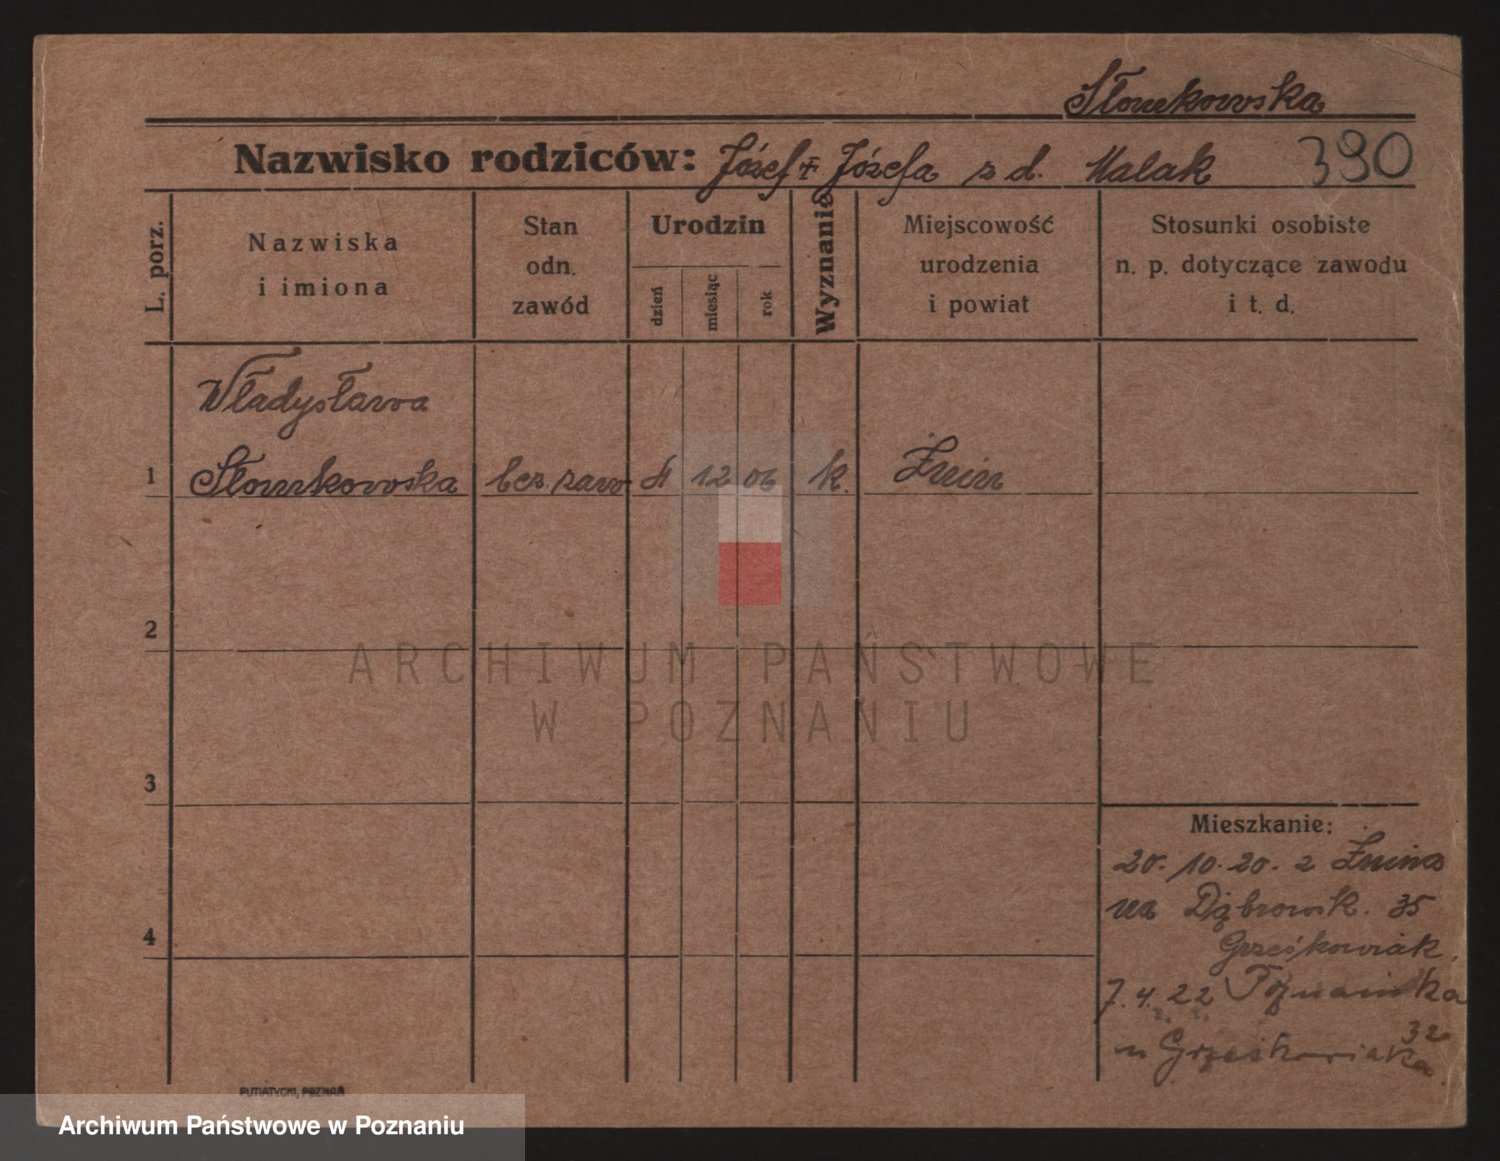 Słomkowska
Nazwisko rodziców: Józef + Józefa z d. Malak 390
L. porz.
Nazwiska
i imiona
Stan
odn.
zawód
Urodzin
dzień
miesiąc
rok
Wyznanie
Miejscowość
urodzenia
i powiat
Stosunki osobiste
n. p. dotyczące zawodu
i t. d.
Władysława
1 Słomkowska bez zaw 12 06 k. Żnin
2
ARCHIWUM PAŃSTWOWE
W POZNANIU
3
Mieszkanie:
20. 10. 20. z Żnina
na Dąbrowsk. 35
4
Grześkowiak.
7. 4. 22 Poznańska
32
u Grześkowiaka.
PUTIATYCKI, POZNAŃ
Archiwum Państwowe w Poznaniu